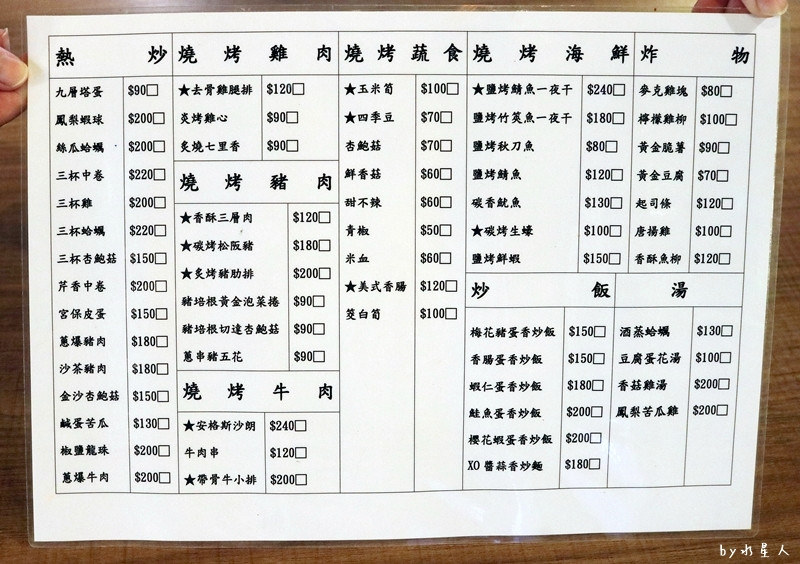 熱炒
九層塔蛋 $90□
鳳梨蝦球 $200□
絲瓜蛤蠣 $200□
三杯中卷 $220□
三杯雞 $200□
三杯蛤蠣 $220□
三杯杏鮑菇 $150□
芹香中卷 $200□
宮保皮蛋 $150□
蔥爆豬肉 $180□
沙茶豬肉 $180□
金沙杏鮑菇 $150□
鹹蛋苦瓜 $130□
椒鹽龍珠 $200□
蔥爆牛肉 $200□
燒烤雞肉
★去骨雞腿排 $120□
炙烤雞心 $90□
炙燒七里香 $90□
燒烤豬肉
★香酥三層肉 $120□
★碳烤松阪豬 $180□
★炙烤豬肋排 $200□
豬培根黃金泡菜捲 $90□
豬培根切達杏鮑菇 $90□
蔥串豬五花 $90□
燒烤牛肉
★安格斯沙朗 $240□
牛肉串 $120□
★帶骨牛小排 $200□
燒烤蔬食
★玉米筍 $100□
★四季豆 $70□
杏鮑菇 $70□
鮮香菇 $60□
甜不辣 $60□
青椒 $50□
米血 $60□
★美式香腸 $120□
筊白筍 $100□
燒烤海鮮
★鹽烤鯖魚一夜干 $240□
鹽烤竹筴魚一夜干 $180□
鹽烤秋刀魚 $80□
鹽烤鯖魚 $120□
碳香魷魚 $130□
★碳烤生蠔 $100□
鹽烤鮮蝦 $150□
炸物
麥克雞塊 $80□
檸檬雞柳 $100□
黃金脆薯 $90□
黃金豆腐 $70□
起司條 $120□
唐揚雞 $100□
香酥魚柳 $120□
炒飯
梅花豬蛋香炒飯 $150□
香腸蛋香炒飯 $150□
蝦仁蛋香炒飯 $180□
鮭魚蛋香炒飯 $200□
櫻花蝦蛋香炒飯 $200□
XO 醬蒜香炒麵 $180□
湯
酒蒸蛤蠣 $130□
豆腐蛋花湯 $100□
香菇雞湯 $200□
鳳梨苦瓜雞 $200□
by水星人